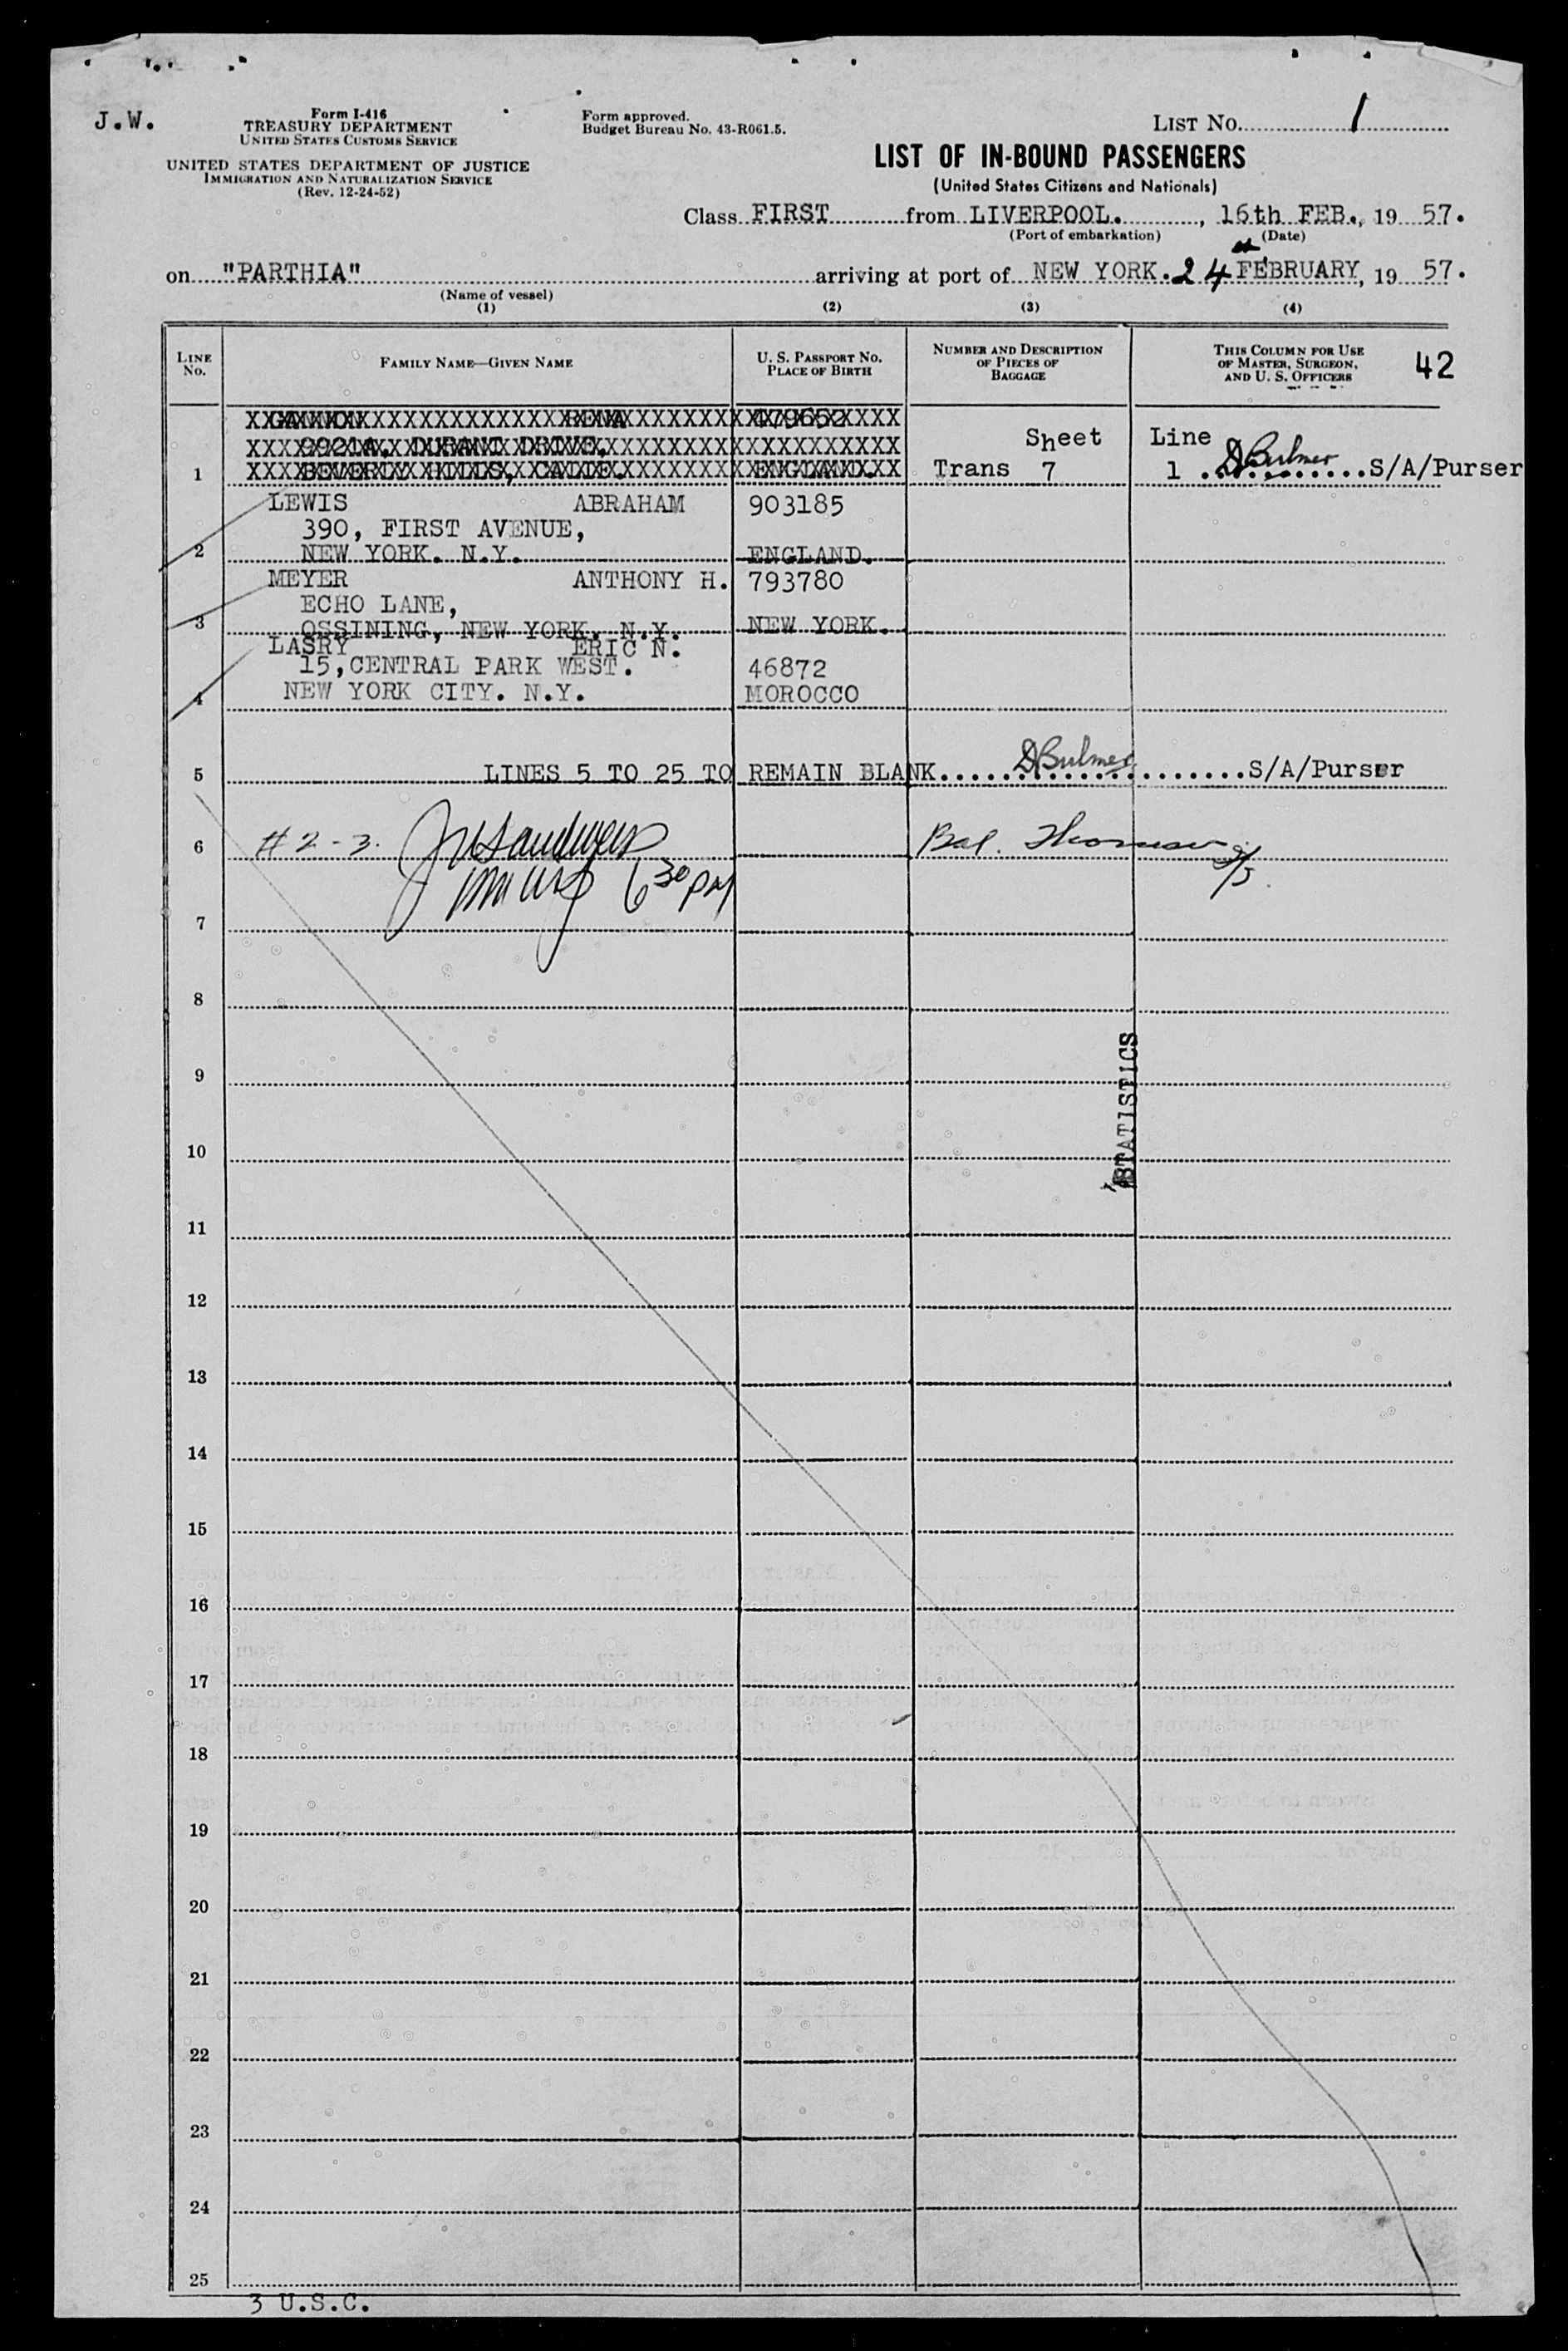 J.W.
Form I-416
TREASURY DEPARTMENT
UNITED STATES CUSTOMS SERVICE
UNITED STATES DEPARTMENT OF JUSTICE
IMMIGRATION AND NATURALIZATION SERVICE
(Rev. 12-24-52)
Form approved.
Budget Bureau No. 43-R061.5.
LIST NO. 1
LIST OF IN-BOUND PASSENGERS
(United States Citizens and Nationals)
Class FIRST from LIVERPOOL. , 16th FEB., 19 57.
(Port of embarkation) (Date)
on "PARTHIA" arriving at port of NEW YORK. 24 FEBRUARY, 19 57.
(Name of vessel)
(1) (2) (3) (4)
LINE No. FAMILY NAME—GIVEN NAME U. S. PASSPORT NO. PLACE OF BIRTH NUMBER AND DESCRIPTION OF PIECES OF BAGGAGE THIS COLUMN FOR USE OF MASTER, SURGEON, AND U. S. OFFICERS 42
GANNON RENA 479652
9921A, DURANT DRIVE, Sheet Line
1 BEVERLY HILLS, CALIF. ENGLAND. Trans 7 1 D Bulmer S/A/Purser
LEWIS ABRAHAM 903185
390, FIRST AVENUE,
2 NEW YORK. N.Y. ENGLAND.
MEYER ANTHONY H. 793780
ECHO LANE,
3 OSSINING, NEW YORK. N.Y. NEW YORK.
LASRY ERIC N.
15,CENTRAL PARK WEST. 46872
4 NEW YORK CITY. N.Y. MOROCCO
5 LINES 5 TO 25 TO REMAIN BLANK. D Bulmer S/A/Purser
6 #2-3. Bal.
630 PM
7
8
9
STATISTICS
10
11
12
13
14
15
16
17
18
19
20
21
22
23
24
25
3 U.S.C.